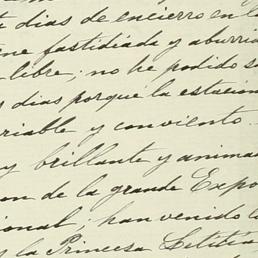 dias de encierro en l
ne fastidiada y aburri
libre; no he podido s
s dias porque la estacion
riable y conviento.
y brillante y anima
on de la grande Expo
ional; han venido l
y la Princesa Letitia